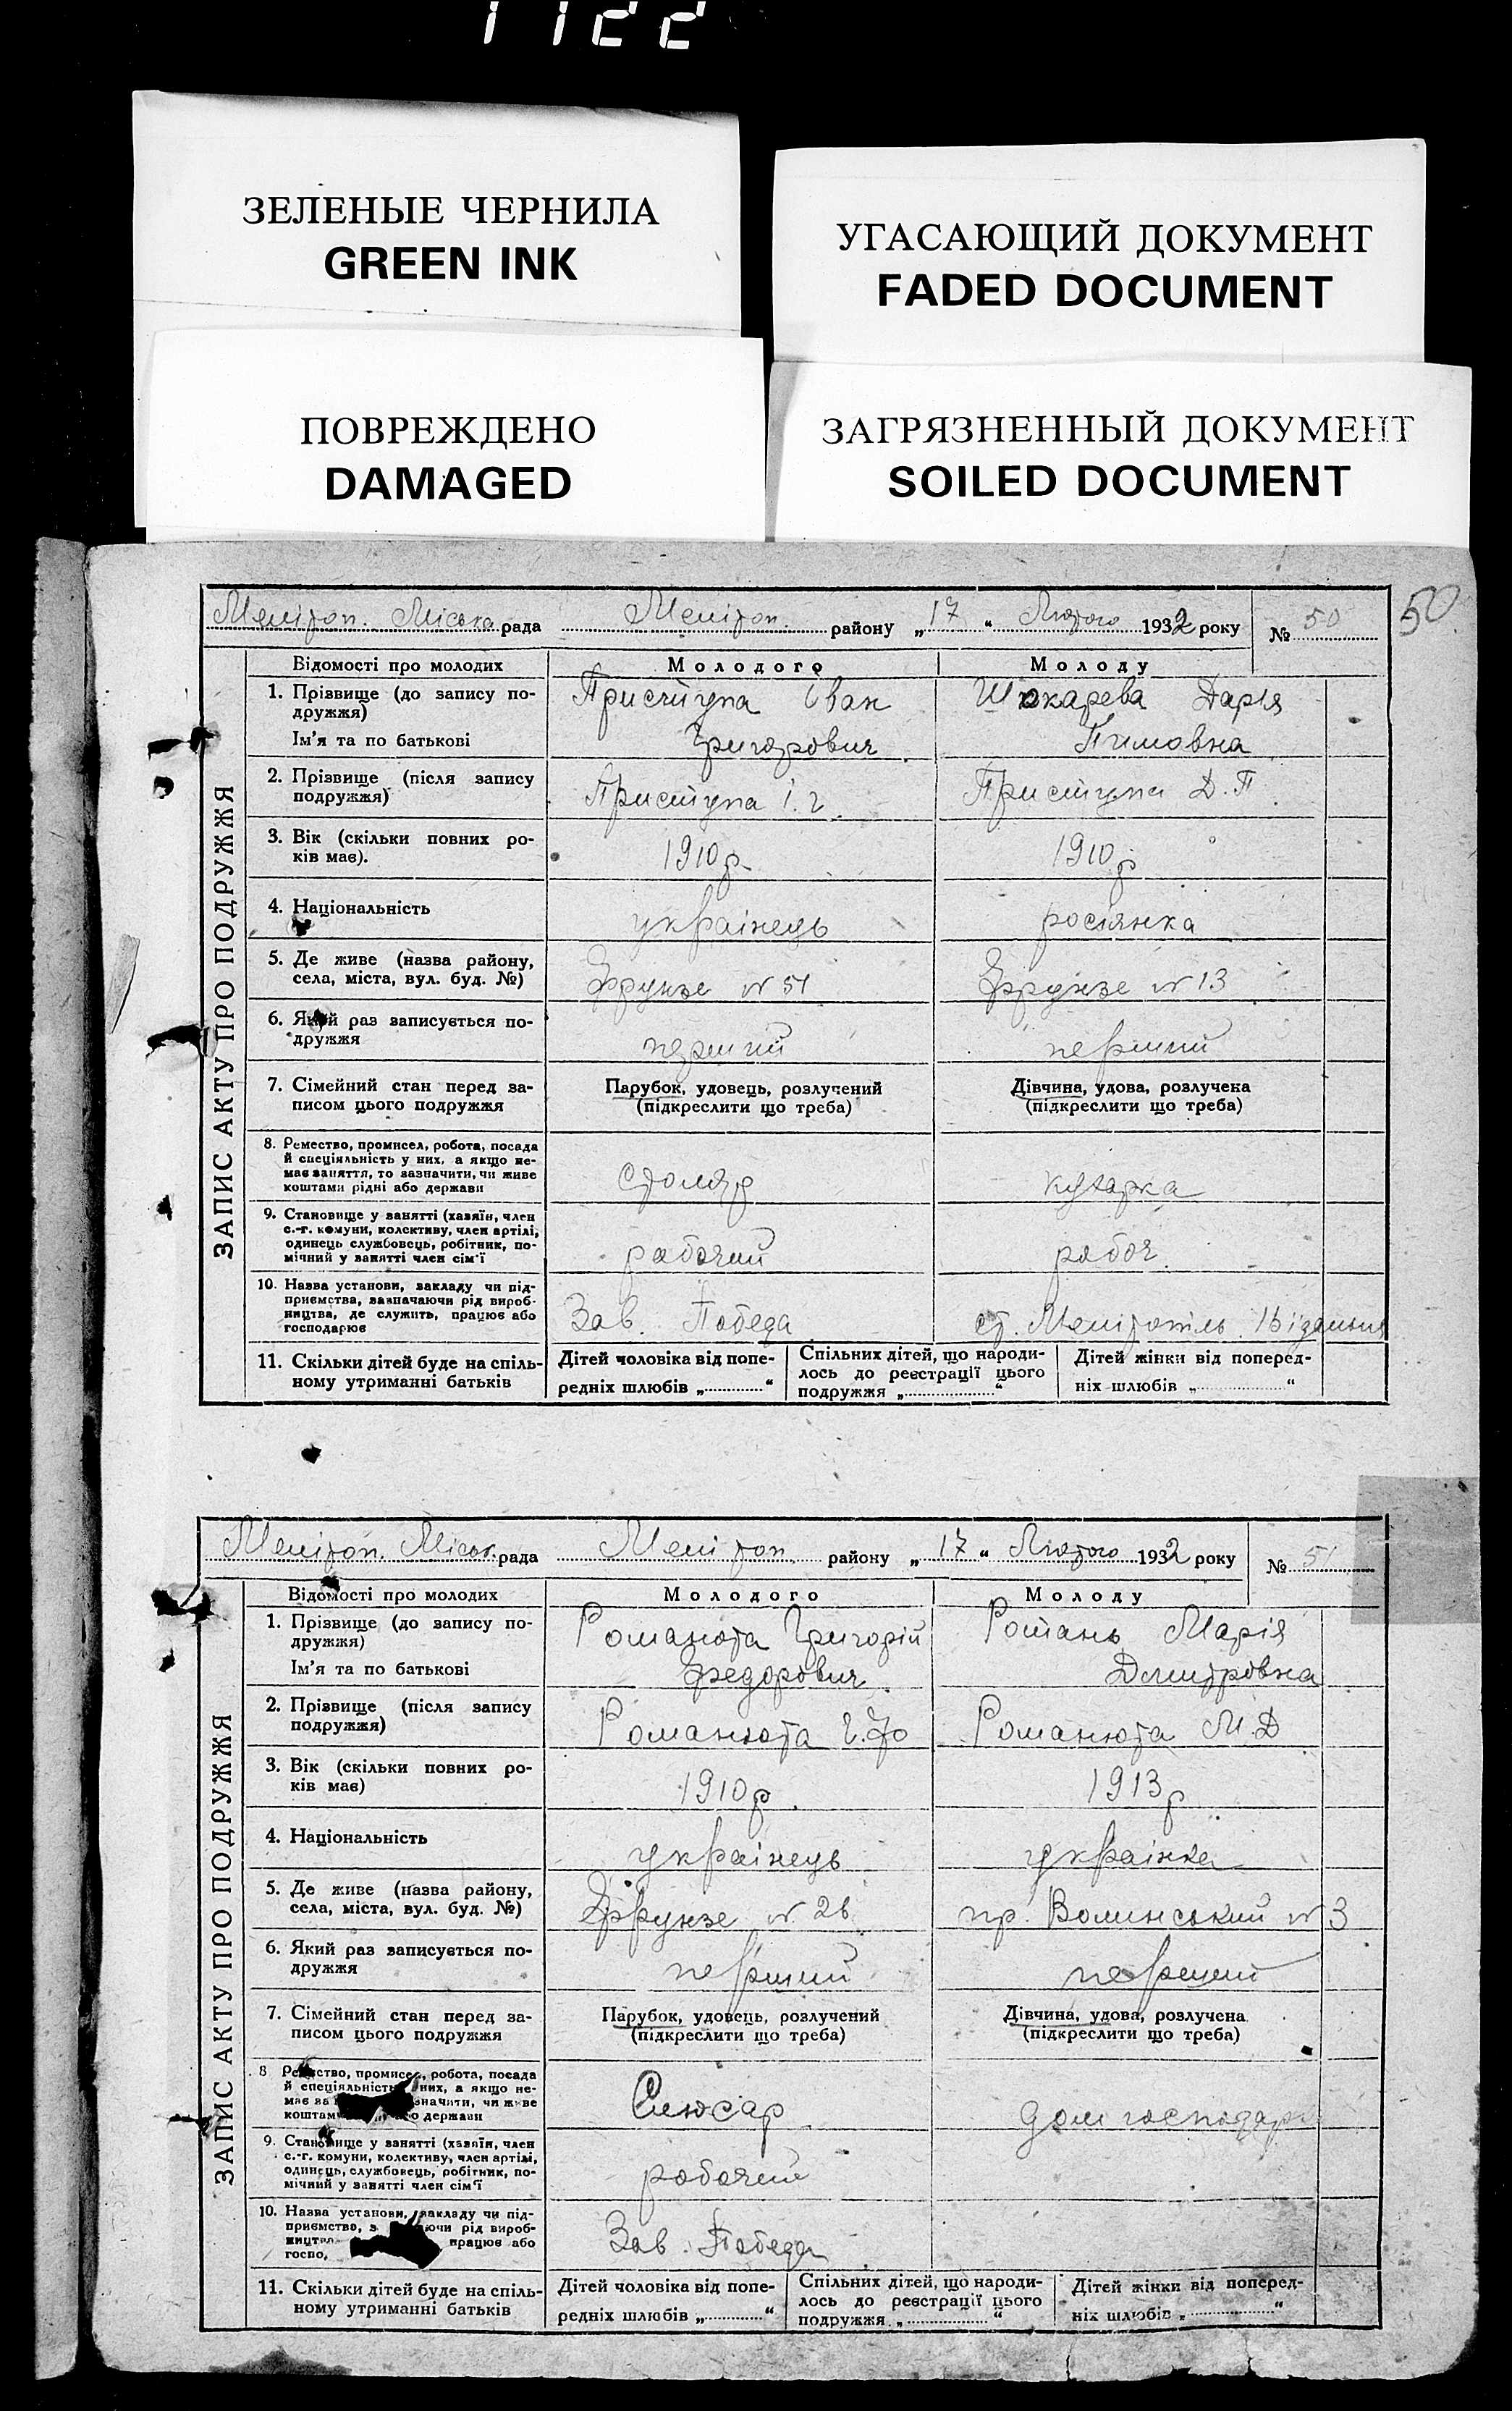 1122
ЗЕЛЕНЫЕ ЧЕРНИЛА
GREEN INK
УГАСАЮЩИЙ ДОКУМЕНТ
FADED DOCUMENT
ПОВРЕЖДЕНО
DAMAGED
ЗАГРЯЗНЕННЫЙ ДОКУМЕНТ
SOILED DOCUMENT
50
Меліtоп. Міська рада Меліtоп. району „17“ Лютого 1932 року № 50
ЗАПИС АКТУ ПРО ПОДРУЖЖЯ
Відомості про молодих Молодого Молоду
1. Прізвище (до запису по-
дружжя)
Присtупа Іван Шокарева Дарія
Ім'я та по батькові Григорович Пимовна
2. Прізвище (після запису
подружжя)
Приступа І. Г. Приступа Д. П.
3. Вік (скільки повних ро-
ків має).
1910р 1910р
4. Національність українець росіянка
5. Де живе (назва району,
села, міста, вул. буд. №)
Фрунзе № 51 Фрунзе № 13
6. Який раз записується по-
дружжя
перший перший
7. Сімейний стан перед за-
писом цього подружжя
Парубок, удовець, розлучений
(підкреслити що треба)
Дівчина, удова, розлучена
(підкреслити що треба)
8. Ремество, промисел, робота, посада
й спеціяльність у них, а якщо не-
має заняття, то зазначити, чи живе
коштами рідні або держави
столяр кухарка
9. Становище у занятті (хазяїн, член
с.-г. комуни, колективу, член артілі,
одинець службовець, робітник, по-
мічний у занятті член сім'ї
рабочий рабоч.
10. Назва установи, закладу чи під-
приємства, зазначаючи рід вироб-
ництва, де служить, працює або
господарює
Зав. Победа ст. Меліtопіль
11. Скільки дітей буде на спіль-
ному утриманні батьків
Дітей чоловіка від попе-
редніх шлюбів „ “
Спільних дітей, що народи-
лось до реєстрації цього
подружжя „ “
Дітей жінки від поперед-
ніх шлюбів „ “
Меліtоп. Міськ. рада Меліtоп. району „17“ Лютого 1932 року № 51
ЗАПИС АКТУ ПРО ПОДРУЖЖЯ
Відомості про молодих Молодого Молоду
1. Прізвище (до запису по-
дружжя)
Романюта Григорій Романь Марія
Ім'я та по батькові Федорович Дмитровна
2. Прізвище (після запису
подружжя)
Романюта Г. Ф Романюта М. Д
3. Вік (скільки повних ро-
ків має)
1910р. 1913р
4. Національність українець українка
5. Де живе (назва району,
села, міста, вул. буд. №)
Фрунзе № 26 пр. Волинський № 3
6. Який раз записується по-
дружжя
перший перший
7. Сімейний стан перед за-
писом цього подружжя
Парубок, удовець, розлучений
(підкреслити що треба)
Дівчина, удова, розлучена
(підкреслити що треба)
8 промисел, робота, посада
й спеціяльність них, а якщо не-
має чи живе
держави
Слюсар дом господарк
9. Становище у занятті (хазяїн, член
с.-г. комуни, колективу, член артілі,
одинець, службовець, робітник, по-
мічний у занятті член сім'ї
рабочий
10. Назва установи, закладу чи під-
приємства, рід вироб-
працює або
Зав. Победа
11. Скільки дітей буде на спіль-
ному утриманні батьків
Дітей чоловіка від попе-
редніх шлюбів „ “
Спільних дітей, що народи-
лось до реєстрації цього
подружжя „ “
Дітей жінки від поперед-
ніх шлюбів „ “